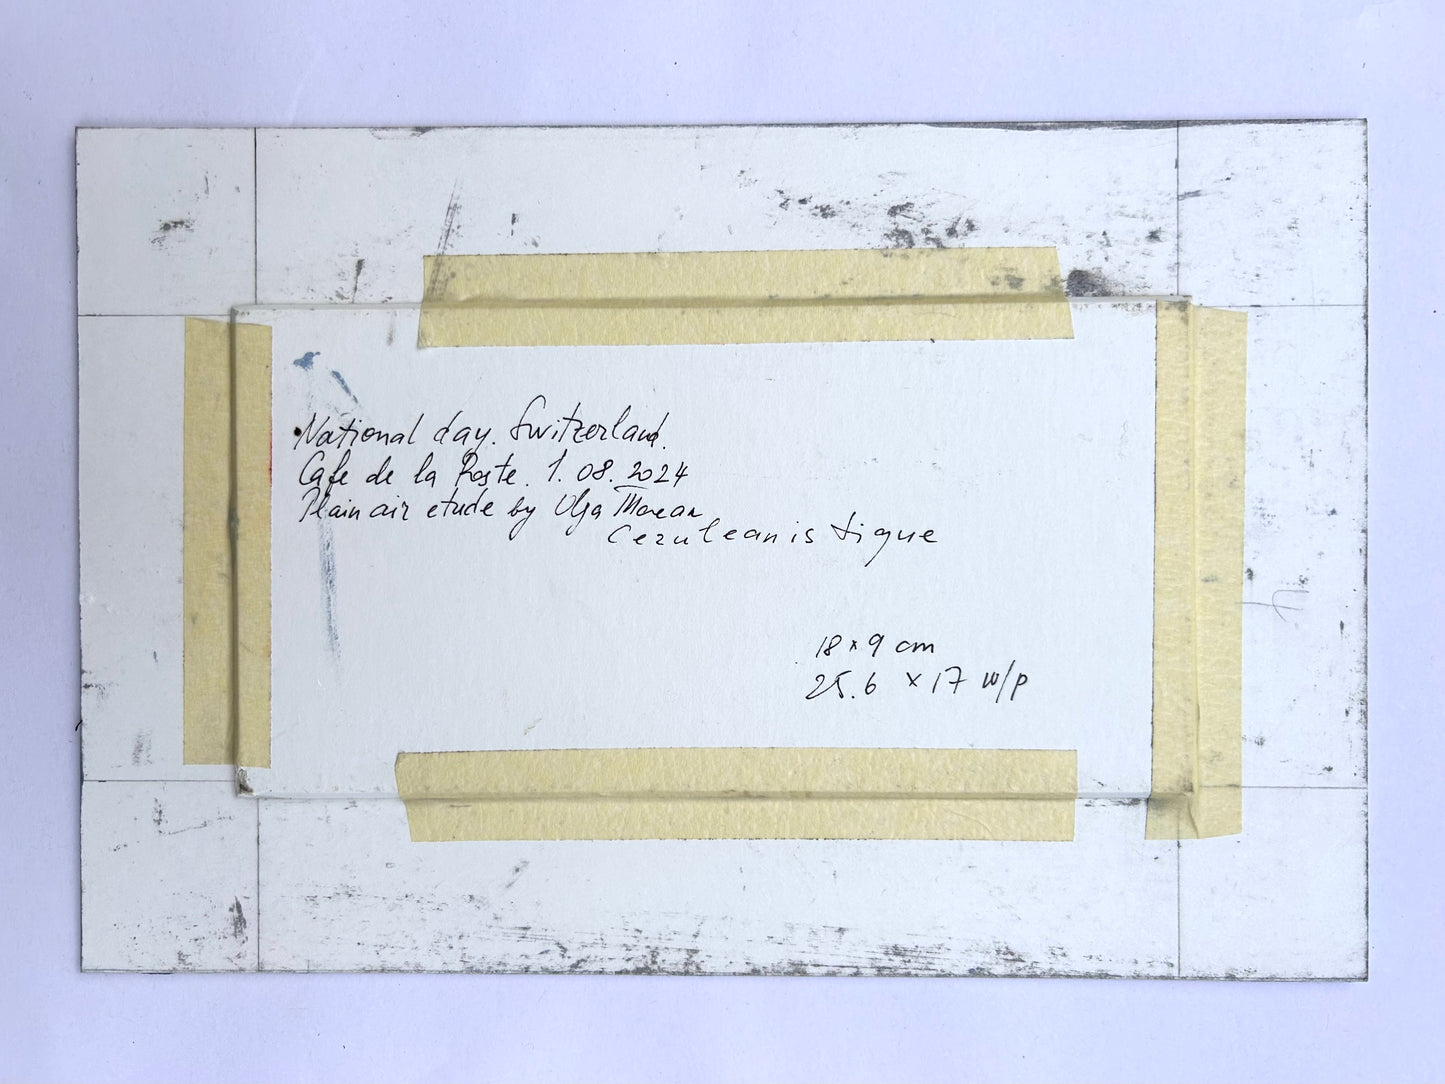 National day. Switzerland.
Cafe de la Poste. 1. 08. 2024
Plain air etude by Olga
Ceruleanistique
18 × 9 cm
25.6 × 17 w/p